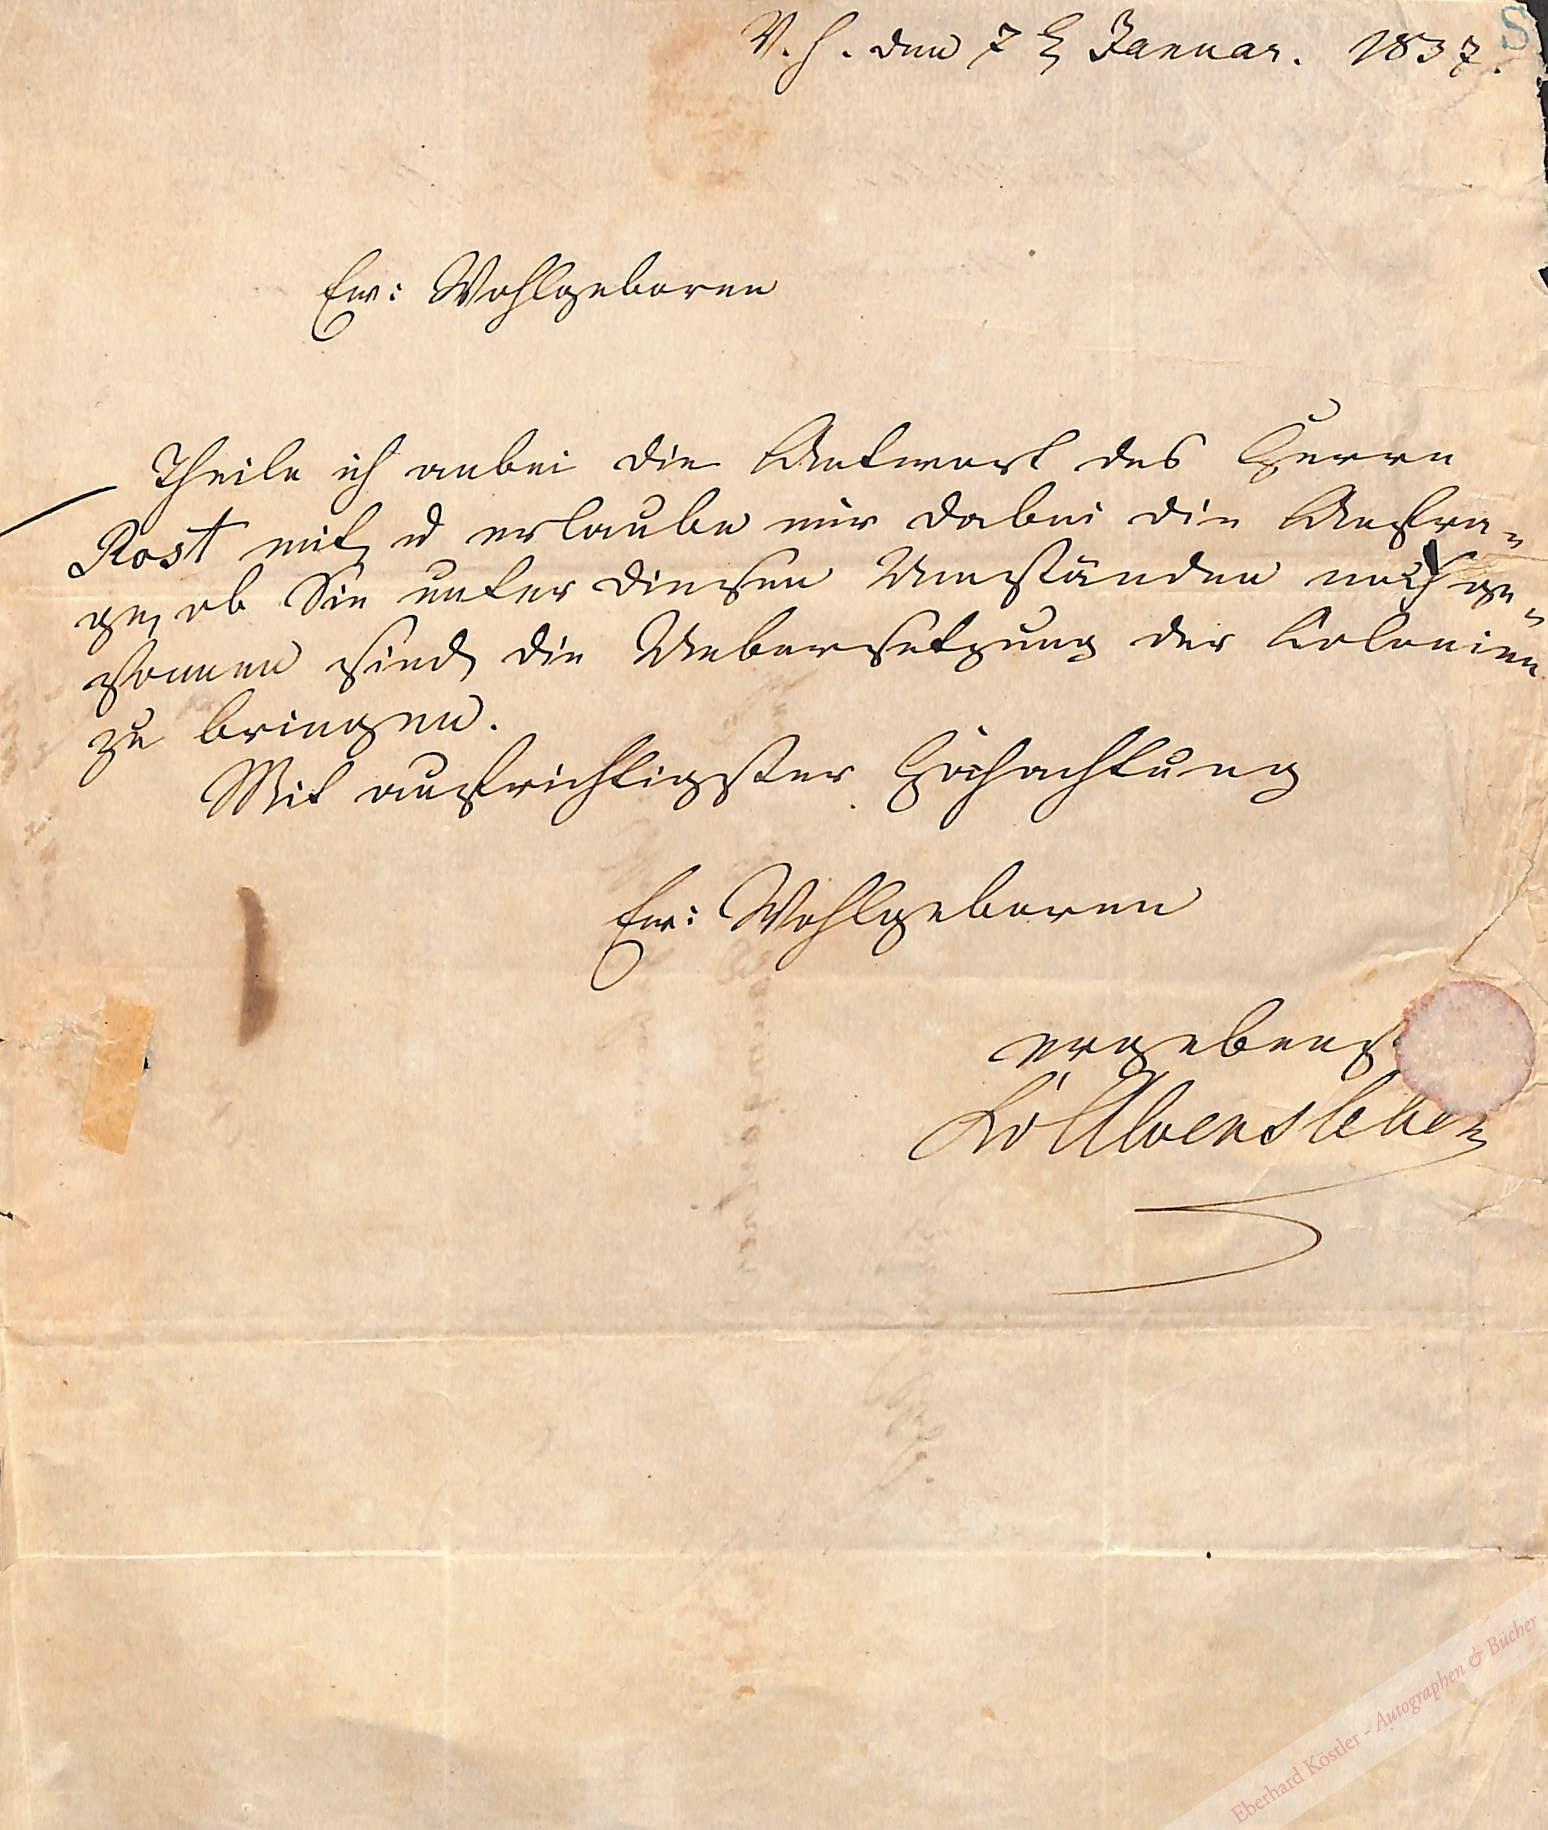 V. H. den 7 t Januar. 1837.
S
Ew: Wohlgeboren
Theile ich anbei die Antwort des Herrn
Rost mit, u erlaube mir dabei die Anfra-
ge, ob Sie unter diesen Umständen noch ge-
sonnen sind, die Uebersetzung der Kolonien
zu bringen.
Mit aufrichtigster Hochachtung
Ew: Wohlgeboren
ergebenst
v Alvensleben
Eberhard Köstler - Autographen & Bücher